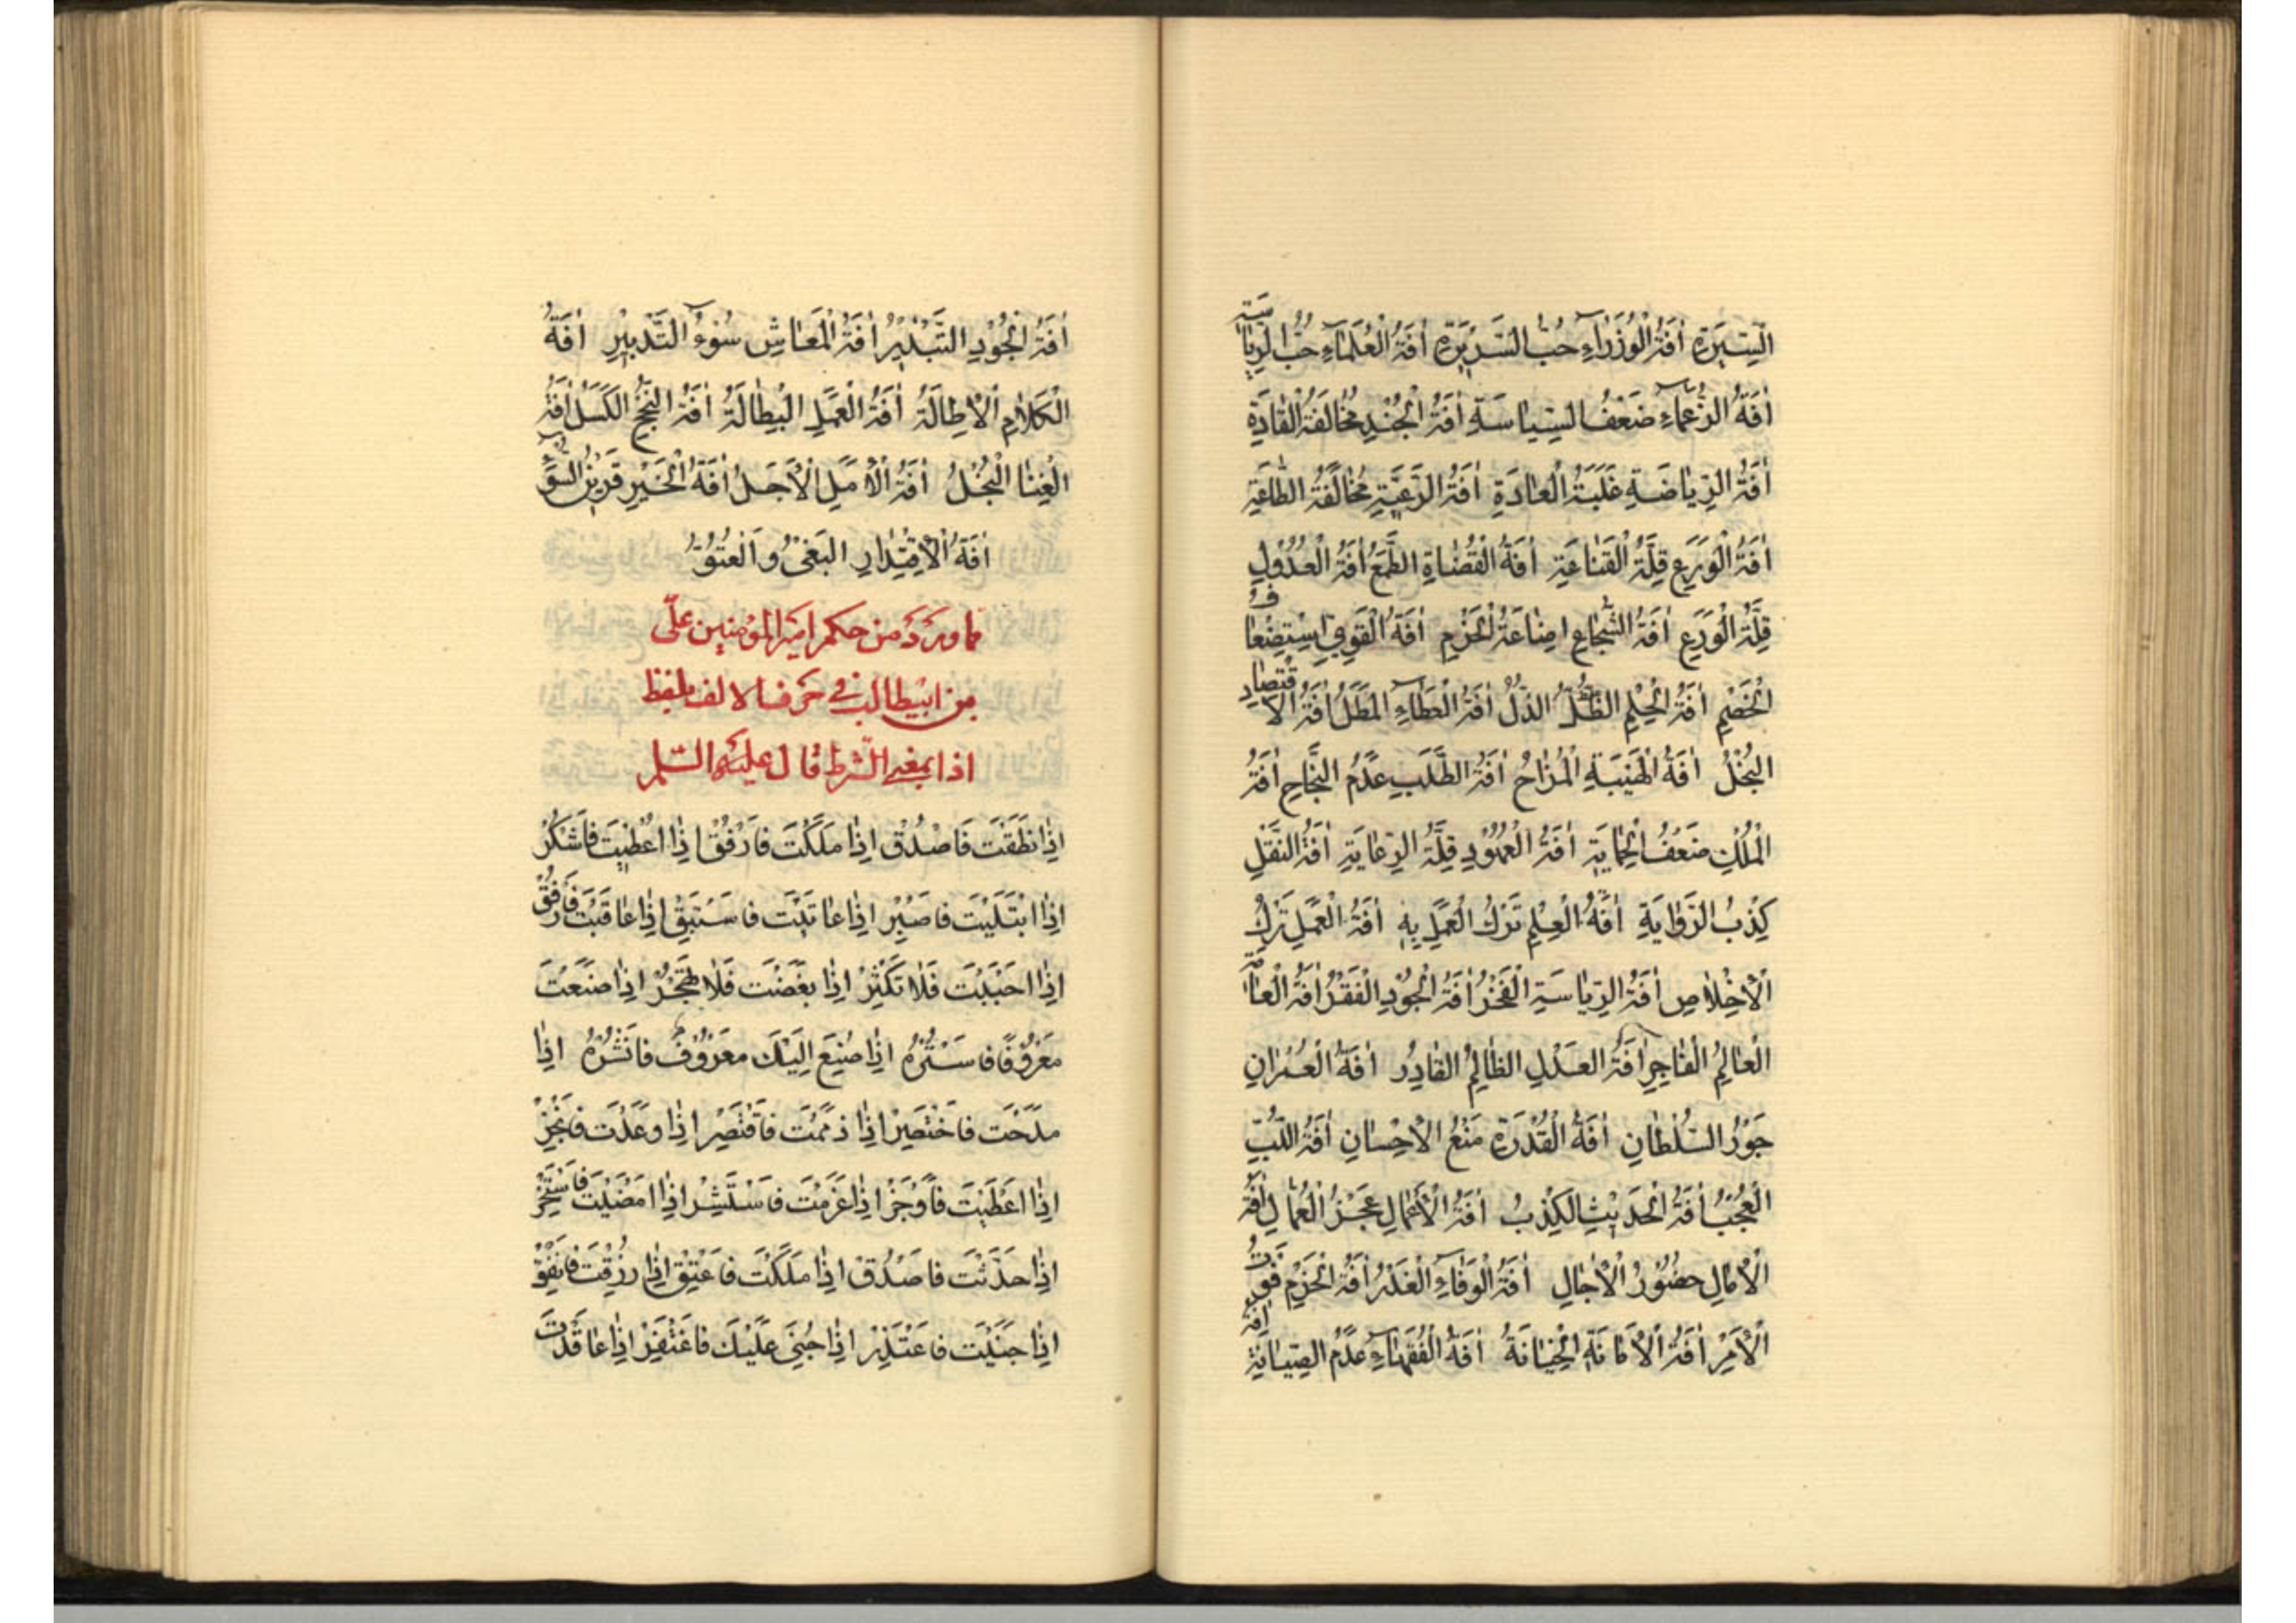 السِّيرَةِ اٰفَةُ الْوُزَرَاءِ حُبْثُ السَّرِيرَةِ اٰفَةُ الْعُلَمَاءِ حُبُّ الرِّيَاسَةِ
اٰفَةُ الزُّعَمَاءِ ضَعْفُ السِّيَاسَةِ اٰفَةُ الْجُنْدِ مُخَالَفَةُ الْقَادَةِ
اٰفَةُ الرِّيَاضَةِ غَلَبَةُ الْعَادَةِ اٰفَةُ الرَّعِيَّةِ مُخَالَفَةُ الطَّاعَةِ
اٰفَةُ الْوَرَعِ قِلَّةُ الْقَنَاعَةِ اٰفَةُ الْقُضَاةِ الطَّمَعُ اٰفَةُ الْعُدُوْلِ
قِلَّةُ الْوَرَعِ اٰفَةُ الشُّجَاعِ اِضَاعَةُ الْحَزْمِ اٰفَةُ الْقَوِيِّ اِسْتِضْعَافُ
الْخَصْمِ اٰفَةُ الْحِلْمِ الذُّلُّ اٰفَةُ الْعَطَاءِ الْمَطَلُ اٰفَةُ الْاِقْتِصَادِ
الْبُخْلُ اٰفَةُ الْهَيْبَةِ الْمُزَاحُ اٰفَةُ الطَّلَبِ عَدَمُ النَّجَاحِ اٰفَةُ
الْمُلْكِ ضَعْفُ الْحِمَايَةِ اٰفَةُ الْعُهُوْدِ قِلَّةُ الرِّعَايَةِ اٰفَةُ النَّقْلِ
كِذْبُ الرَّوَايَةِ اٰفَةُ الْعِلْمِ تَرْكُ الْعَمَلِ بِهِ اٰفَةُ الْعَمَلِ تَرْكُ
الْاِخْلَاصِ اٰفَةُ الرِّيَاسَةِ الْفَخْرُ اٰفَةُ الْجُوْدِ الْفَقْرُ اٰفَةُ الْعَامَّةِ
الْعَالِمُ الْفَاجِرُ اٰفَةُ الْعَدْلِ الظَّالِمُ الْقَادِرُ اٰفَةُ الْعُمْرَانِ
جَوْرُ السُّلْطَانِ اٰفَةُ الْقُدْرَةِ مَنْعُ الْاِحْسَانِ اٰفَةُ اللُّبِّ
الْعُجْبُ اٰفَةُ الْحَدِيْثِ الْكِذْبُ اٰفَةُ الْاَعْمَالِ عَجْزُ الْعُمَّالِ اٰفَةُ
الْاٰمَالِ حُضُوْرُ الْاٰجَالِ اٰفَةُ الْوَفَاءِ الْغَدْرُ اٰفَةُ الْحَزْمِ فَوْتُ
الْاَمْرِ اٰفَةُ الْاَمَانَةِ الْخِيَانَةُ اٰفَةُ الْفُقَهَاءِ عَدَمُ الصِّيَانَةِ اٰفَةُ
اٰفَةُ الْجُوْدِ التَّبْذِيْرُ اٰفَةُ الْمَعَاشِ سُوْءُ التَّدْبِيْرِ اٰفَةُ
الْكَلَامِ الْاِطَالَةُ اٰفَةُ الْعَمَلِ الْبِطَالَةُ اٰفَةُ النُّجْحِ الْكَسَلُ اٰفَةُ
الْغِنَا الْبُخْلُ اٰفَةُ الْاَمَلِ الْاَجَلُ اٰفَةُ الْخَيْرِ قَرِيْنُ السُّوْءِ
اٰفَةُ الْاِقْتِدَارِ الْبَغْىُ وَالْعُتُوُّ
مما ورد من حكم امير المؤمنين على
بن ابيطالب فى حرف الالف بلفظ
اذا بمعنى الشرط قال عليه السلم
اِذَا نَطَقْتَ فَاصْدُقْ اِذَا مَلَكْتَ فَارْفُقْ اِذَا اُعْطِيْتَ فَاشْكُرْ
اِذَا ابْتَلَيْتَ فَاصْبِرْ اِذَا عَاتَبْتَ فَاسْتَبِقْ اِذَا عَاقَبْتَ فَارْفُقْ
اِذَا اَحْبَبْتَ فَلَا تَكْثِرْ اِذَا بَغَضْتَ فَلَا تَهْجُرْ اِذَا صَنَعْتَ
مَعْرُوْفًا فَاسْتُرْهُ اِذَا صُنِعَ اِلَيْكَ مَعْرُوْفٌ فَانْشُرْهُ اِذَا
مَدَحْتَ فَاخْتَصِرْ اِذَا ذَمَمْتَ فَاقْتَصِرْ اِذَا وَعَدْتَ فَانْجِزْ
اِذَا اَعْطَيْتَ فَاَوْجِزْ اِذَا عَزَمْتَ فَاسْتَشِرْ اِذَا اَمْضَيْتَ فَاسْتَخِرْ
اِذَا حَدَّثْتَ فَاصْدُقْ اِذَا مَلَكْتَ فَاعْتِقْ اِذَا رُزِقْتَ فَانْفِقْ
اِذَا جَنَيْتَ فَاعْتَذِرْ اِذَا جُنِىَ عَلَيْكَ فَاغْتَفِرْ اِذَا عَاقَدْتَ